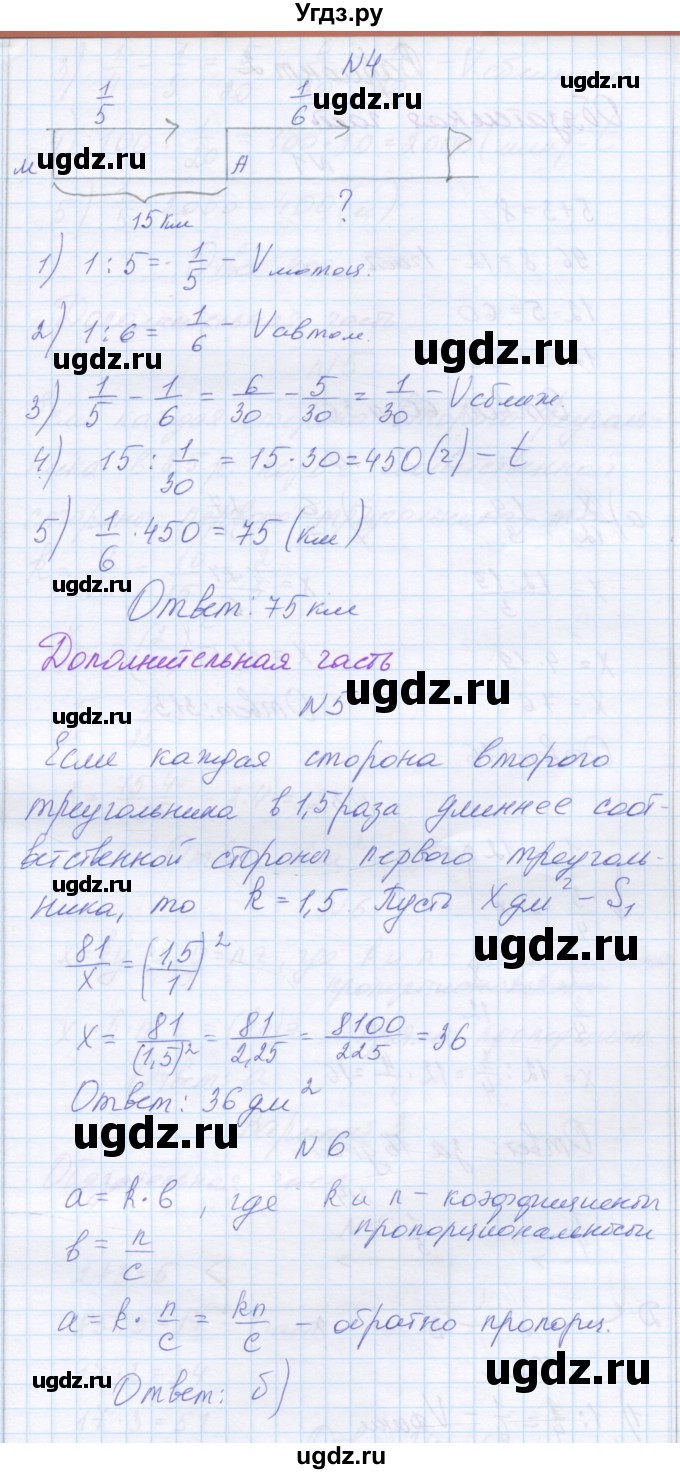 Угдз.ру
N4
1/5 1/6
ugdz.ru
ugdz.ru
М А
15 км ?
1) 1 : 5 = 1/5 – Vмотоц.
2) 1 : 6 = 1/6 – Vавтом.
ugdz.ru
ugdz.ru
3) 1/5 – 1/6 = 6/30 – 5/30 = 1/30 – Vсближ.
4) 15 : 1/30 = 15 · 30 = 450 (г) – t
5) 1/6 · 450 = 75 (км)
ugdz.ru
Ответ: 75 км
Дополнительная часть
ugdz.ru
N5
ugdz.ru
Если каждая сторона второго
треугольника в 1,5 раза длиннее соот-
ветственной стороны первого треуголь-
ugdz.ru
ника, то k = 1,5. Пусть X дм² – S₁
ugdz.ru
81/x = (1,5/1)²
x = 81/(1,5)² = 81/2,25 = 8100/225 = 36
Ответ: 36 дм²
ugdz.ru
N6
a = k · в, где k и n – коэффициенты
пропорциональности
в = n/c
a = k · n/c = kn/c – обратно пропорц.
ugdz.ru
ugdz.ru
Ответ: б)
ugdz.ru